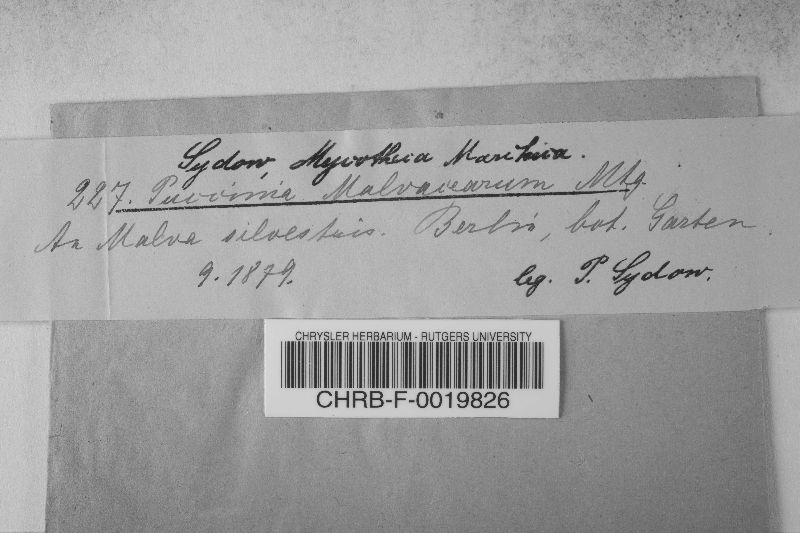 Sydow, Mycotheca Marchica.
227. Puccinia Malvacearum Mtg.
An Malva silvestris. Berlin, bot. Garten.
9. 1879. leg. P. Sydow.
CHRYSLER HERBARIUM - RUTGERS UNIVERSITY
CHRB-F-0019826